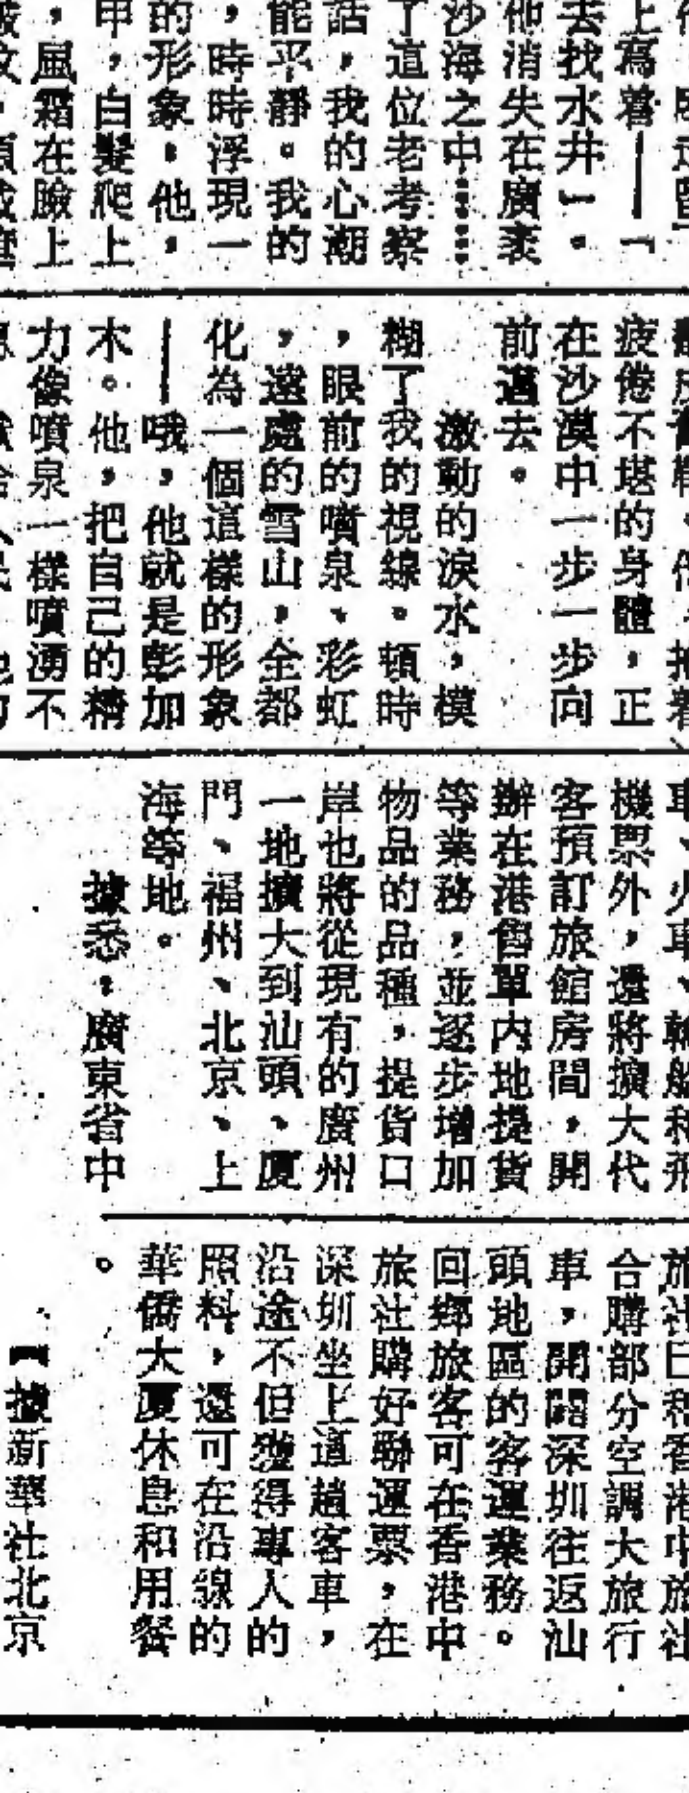 上寫着——「
去找水井」。
他消失在廣袤
沙海之中……
了這位老考察
話，我的心潮
能平靜。我的
，時時浮現一
的形象。他，
甲，白髮爬上
，風霜在臉上
疲倦不堪的身體，正
在沙漠中一步一步向
前邁去。
激動的淚水，模
糊了我的視線。頓時
，眼前的噴泉、彩虹
，遠處的雪山，全都
化為一個這樣的形象
——哦，他就是彭加
木。他，把自己的精
力像噴泉一樣噴湧不
車、火車、輪船和飛
機票外，還將擴大代
客預訂旅館房間，開
辦在港售單內地提貨
等業務，並逐步增加
物品的品種，提貨口
岸也將從現有的廣州
一地擴大到汕頭、厦
門、福州、北京、上
海等地。
據悉，廣東省中
旅社已和香港中旅社
合購部分空調大旅行
車，開闢深圳往返汕
頭地區的客運業務。
回鄉旅客可在香港中
旅社購好聯運票，在
深圳坐上這趟客車，
沿途不但獲得專人的
照料，還可在沿線的
華僑大厦休息和用餐
。
【據新華社北京